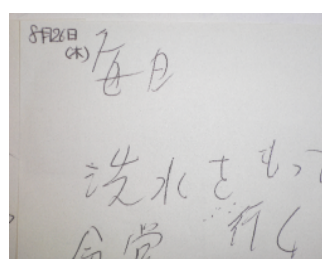 8月26日
(木)
毎日
洗水をもって
食堂 行く